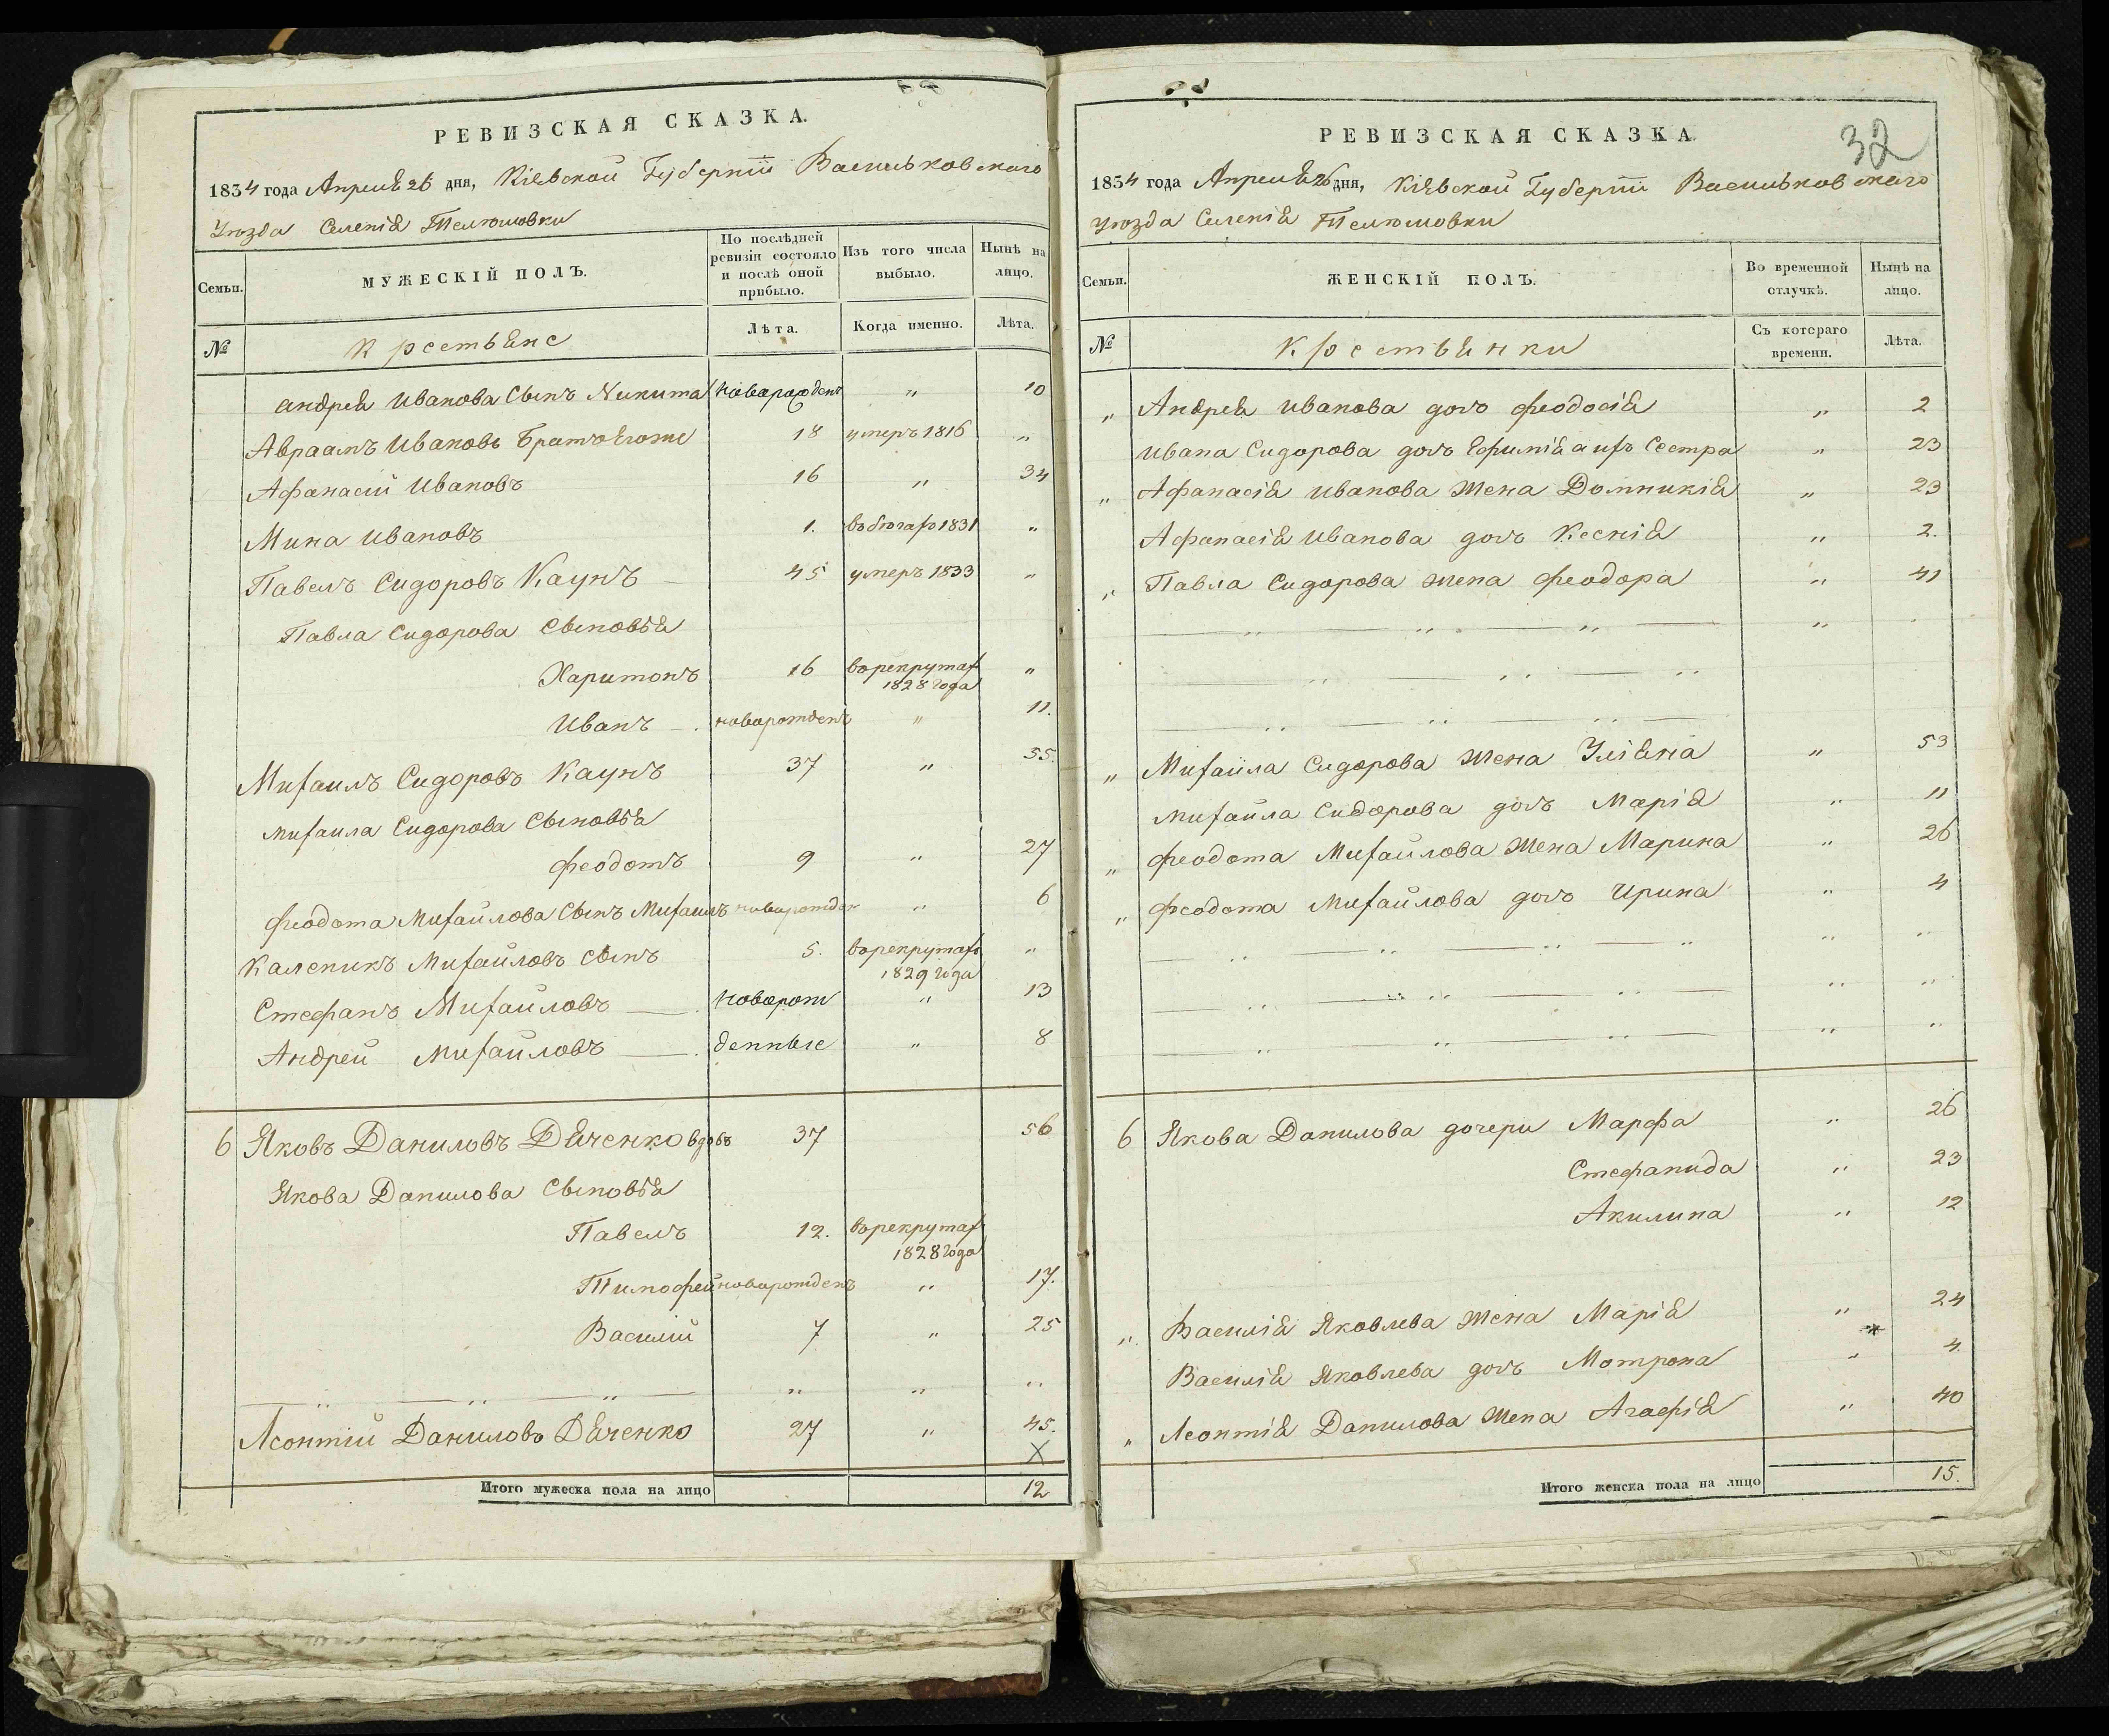 РЕВИЗСКАЯ СКАЗКА.
1834 года Апреля 26 дня, Кіевской Губерніи Васильковскаго
Уѣзда Селенія Телюшовки
Семьи. МУЖЕСКІЙ ПОЛЪ. По послѣдней ревизіи состояло и послѣ оной прибыло. Изъ того числа выбыло. Нынѣ на лицо.
№ Крестьяне Лѣта. Когда именно. Лѣта.
Андрея Иванова Сынъ Никита новорожденъ " 10
Авраамъ Ивановъ Братъ Егоже 18 умеръ 1816 "
Афанасий Ивановъ 16 " 34
Мина Ивановъ 1. въ бегахъ 1831 "
Павелъ Сидоровъ Каунъ 45 умеръ 1833 "
Павла Сидорова Сыновья
Харитонъ 16 въ рекрутах "
1828 года
Иванъ новорожденъ " 11.
Михаилъ Сидоровъ Каунъ 37 " 55.
Михаила Сидорова Сыновья
Феодотъ 9 " 27
Феодота Михайлова Сынъ Михаилъ новорожден " 6
Каленикъ Михайловъ Сынъ 5. въ рекрутахъ "
1829 года
Стефанъ Михайловъ новорож " 13
Андрей Михайловъ денные " 8
6 Яковъ Даниловъ Дяченко вдовъ 37 56
Якова Данилова Сыновья
Павелъ 12. въ рекрутах
1828 года
Тимофей новорожденъ " 17.
Василий 7 " 25
" " " " "
Леонтий Даниловъ Дяченко 27 " 45.
X
Итого мужеска пола на лицо 12
РЕВИЗСКАЯ СКАЗКА.
32
1834 года Апреля 26 дня, Кіевской Губерніи Васильковскаго
Уѣзда Селенія Телюшовки
Семьи. ЖЕНСКІЙ ПОЛЪ. Во временной отлучкѣ. Нынѣ на лицо.
№ Крестьянки Съ котораго времени. Лѣта.
" Андрея Иванова дочъ Феодосія " 2
Ивана Сидорова дочъ Ефимія а ихъ Сестра " 23
" Афанасія Иванова жена Домникія " 23
Афанасія Иванова дочъ Ксенія " 2.
" Павла Сидорова жена Феодора " 41
" " " "
" " "
" " "
" Михаила Сидорова жена Уліяна " 53
Михайла Сидорова дочъ Марія " 11
" Феодота Михайлова жена Марина " 26
" Феодота Михайлова дочъ Ирина " 4
" " " " "
" " " " "
" " " " "
6 Якова Данилова дочери Марфа " 26
Стефанида " 23
Акилина " 12
" Василія Яковлева жена Марія " 24
Василія Яковлева дочъ Мотрона " 4.
" Леонтія Данилова жена Агафія " 40
Итого женска пола на лицо 15.